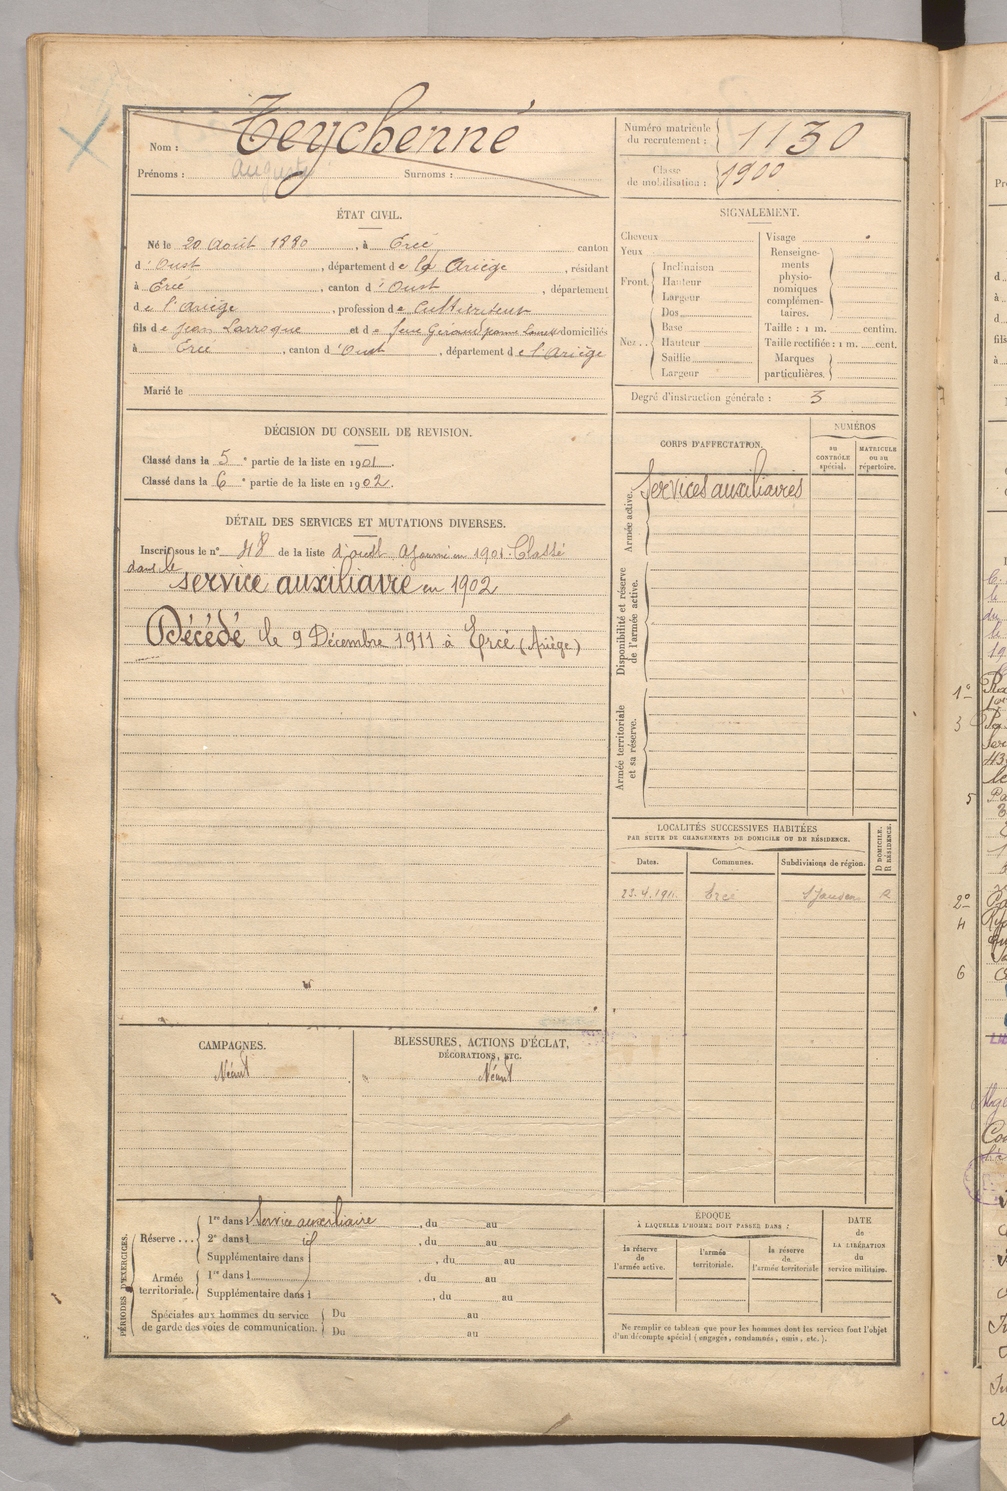 Nom : Teychenné
Prénoms : Auguste Surnoms :
Numéro matricule du recrutement : 1130
Classe de mobilisation : 1900
ÉTAT CIVIL.
Né le 20 Août 1880, à Ercé canton
d'Oust, département de l'Ariège, résidant
à Ercé, canton d'Oust, département
de l'Ariège, profession de Cultivateur
fils de Jean Larroque et de domiciliés
à Ercé, canton d'Oust, département de l'Ariège
Marié le
SIGNALEMENT.
Cheveux
Yeux
Front. Inclinaison
Hauteur
Largeur
Nez.. Dos
Base
Hauteur
Saillie
Largeur
Visage
Renseigne-
ments
physio-
nomiques
complémen-
taires.
Taille : 1 m. centim.
Taille rectifiée : 1 m. cent.
Marques
particulières.
Degré d'instruction générale : 3
DÉCISION DU CONSEIL DE REVISION.
Classé dans la 5e partie de la liste en 1901.
Classé dans la 6e partie de la liste en 1902.
DÉTAIL DES SERVICES ET MUTATIONS DIVERSES.
Inscrit sous le n° 48 de la liste d'oust Ajourné en 1901. Classé
dans le
service auxiliaire en 1902
Décédé le 9 Décembre 1911 à Ercé (Ariège)
CORPS D'AFFECTATION.
NUMÉROS
au CONTRÔLE spécial.
MATRICULE ou au répertoire.
Armée active.
Services auxiliaires
Disponibilité et réserve de l'armée active.
Armée territoriale et sa réserve.
LOCALITÉS SUCCESSIVES HABITÉES
PAR SUITE DE CHANGEMENTS DE DOMICILE OU DE RÉSIDENCE.
Dates. Communes. Subdivisions de région. D DOMICILE. R RÉSIDENCE.
23.4.1911 Ercé R
CAMPAGNES.
Néant
BLESSURES, ACTIONS D'ÉCLAT,
DÉCORATIONS, ETC.
Néant
PÉRIODES D'EXERCICES.
Réserve ... 1re dans l Service auxiliaire, du au
2e dans l id, du au
Supplémentaire dans l, du au
Armée territoriale. 1re dans l, du au
Supplémentaire dans l, du au
Spéciales aux hommes du service
de garde des voies de communication. Du au
Du au
ÉPOQUE
À LAQUELLE L'HOMME DOIT PASSER DANS :
la réserve de l'armée active.
l'armée territoriale.
la réserve de l'armée territoriale
DATE de LA LIBÉRATION du service militaire.
Ne remplir ce tableau que pour les hommes dont les services font l'objet
d'un décompte spécial (engagés, condamnés, omis, etc.).